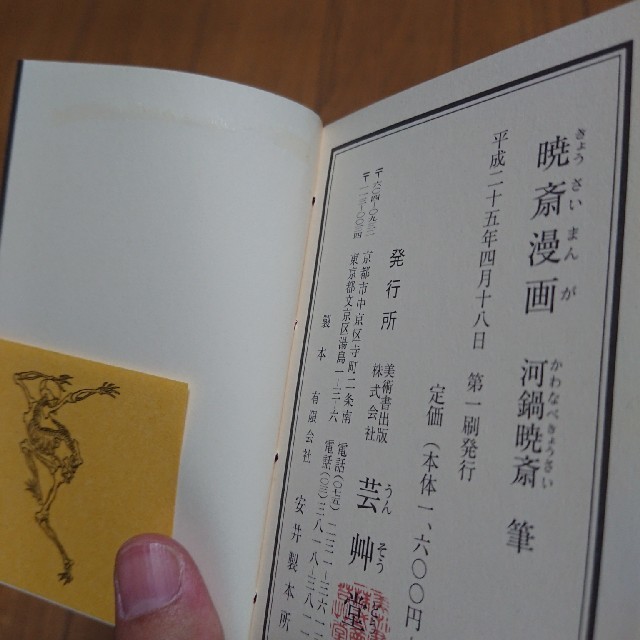 暁斎漫画
きょうさいまんが
河鍋暁斎 筆
かわなべきょうさい
平成二十五年四月十八日 第一刷発行
定価（本体一、六〇〇円
発行所 美術書出版 株式会社 芸艸堂
うんそうどう
京都市中京区寺町二条南
東京都文京区湯島一-三-六
製本 有限会社 安井製本所